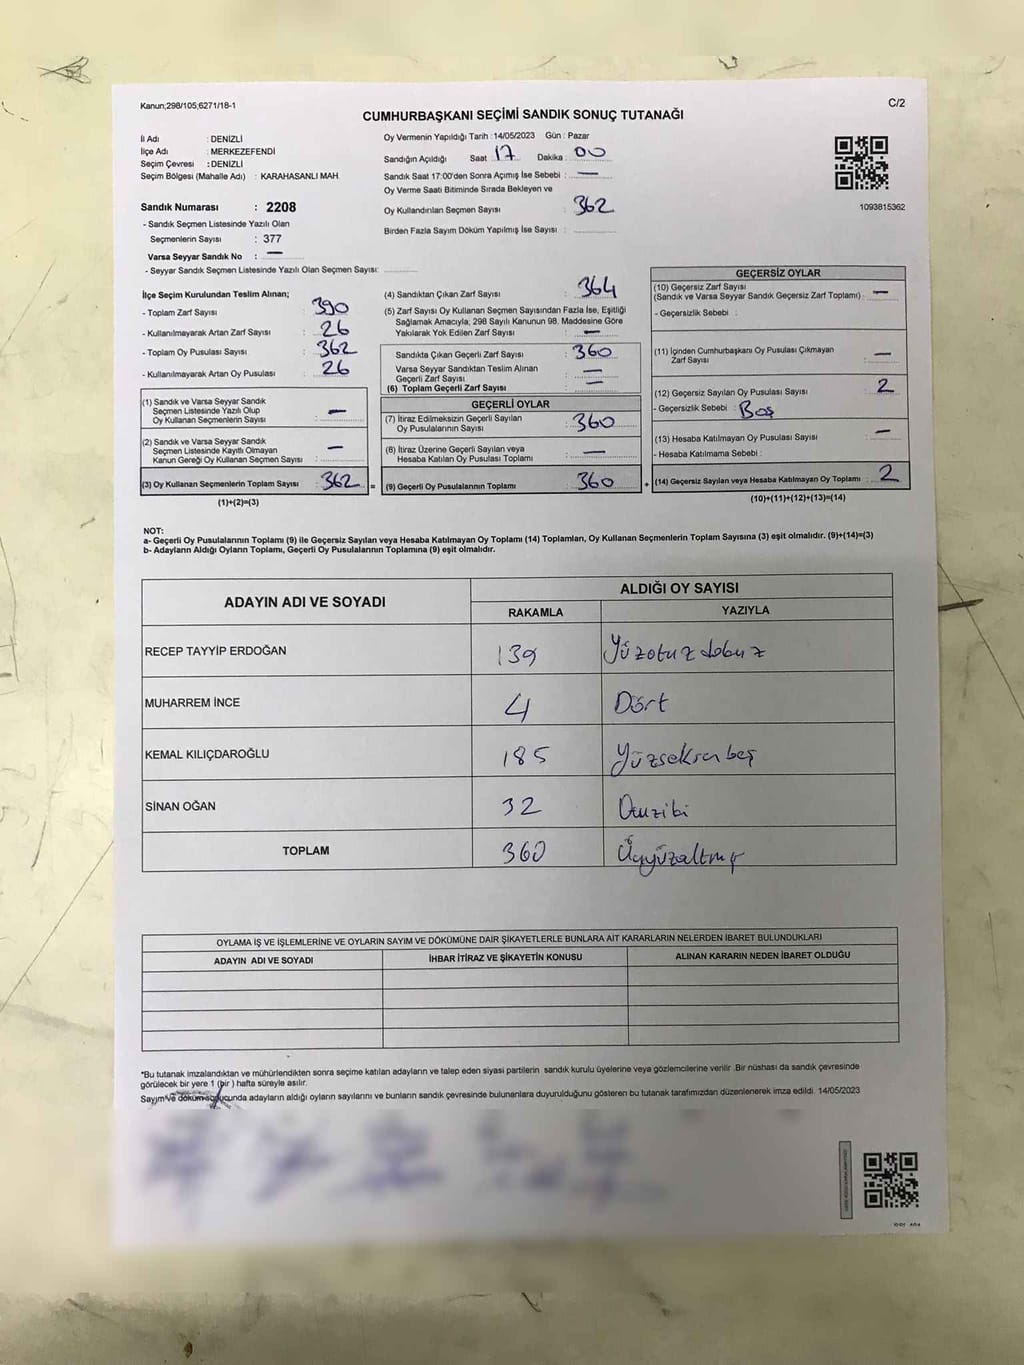 Kanun;298/105;6271/18-1
C/2
CUMHURBAŞKANI SEÇİMİ SANDIK SONUÇ TUTANAĞI
İl Adı : DENİZLİ
İlçe Adı : MERKEZEFENDİ
Seçim Çevresi : DENİZLİ
Seçim Bölgesi (Mahalle Adı) : KARAHASANLI MAH.
Sandık Numarası : 2208
- Sandık Seçmen Listesinde Yazılı Olan
Seçmenlerin Sayısı : 377
Varsa Seyyar Sandık No : —
- Seyyar Sandık Seçmen Listesinde Yazılı Olan Seçmen Sayısı:
Oy Vermenin Yapıldığı Tarih : 14/05/2023 Gün : Pazar
Sandığın Açıldığı Saat 17 Dakika 00
Sandık Saat 17:00'den Sonra Açımış İse Sebebi : —
Oy Verme Saati Bitiminde Sırada Bekleyen ve
Oy Kullandırılan Seçmen Sayısı : 362
Birden Fazla Sayım Döküm Yapılmış İse Sayısı :
1093815362
İlçe Seçim Kurulundan Teslim Alınan;
- Toplam Zarf Sayısı : 390
- Kullanılmayarak Artan Zarf Sayısı : 26
- Toplam Oy Pusulası Sayısı : 362
- Kullanılmayarak Artan Oy Pusulası : 26
(1) Sandık ve Varsa Seyyar Sandık
Seçmen Listesinde Yazılı Olup
Oy Kullanan Seçmenlerin Sayısı : —
(2) Sandık ve Varsa Seyyar Sandık
Seçmen Listesinde Kayıtlı Olmayan
Kanun Gereği Oy Kullanan Seçmen Sayısı : —
(3) Oy Kullanan Seçmenlerin Toplam Sayısı : 362
(1)+(2)=(3)
(4) Sandıktan Çıkan Zarf Sayısı : 364
(5) Zarf Sayısı Oy Kullanan Seçmen Sayısından Fazla İse, Eşitliği
Sağlamak Amacıyla; 298 Sayılı Kanunun 98. Maddesine Göre
Yakılarak Yok Edilen Zarf Sayısı : —
Sandıkta Çıkan Geçerli Zarf Sayısı : 360
Varsa Seyyar Sandıktan Teslim Alınan
Geçerli Zarf Sayısı : —
(6) Toplam Geçerli Zarf Sayısı : —
GEÇERLİ OYLAR
(7) İtiraz Edilmeksizin Geçerli Sayılan
Oy Pusulalarının Sayısı : 360
(8) İtiraz Üzerine Geçerli Sayılan veya
Hesaba Katılan Oy Pusulası Toplamı : —
= (9) Geçerli Oy Pusulalarının Toplamı : 360
GEÇERSİZ OYLAR
(10) Geçersiz Zarf Sayısı
(Sandık ve Varsa Seyyar Sandık Geçersiz Zarf Toplamı) : —
- Geçersizlik Sebebi :
(11) İçinden Cumhurbaşkanı Oy Pusulası Çıkmayan
Zarf Sayısı : —
(12) Geçersiz Sayılan Oy Pusulası Sayısı : 2
- Geçersizlik Sebebi : Boş
(13) Hesaba Katılmayan Oy Pusulası Sayısı : —
- Hesaba Katılmama Sebebi :
+ (14) Geçersiz Sayılan veya Hesaba Katılmayan Oy Toplamı : 2
(10)+(11)+(12)+(13)=(14)
NOT:
a- Geçerli Oy Pusulalarının Toplamı (9) ile Geçersiz Sayılan veya Hesaba Katılmayan Oy Toplamı (14) Toplamları, Oy Kullanan Seçmenlerin Toplam Sayısına (3) eşit olmalıdır. (9)+(14)=(3)
b- Adayların Aldığı Oyların Toplamı, Geçerli Oy Pusulalarının Toplamına (9) eşit olmalıdır.
ADAYIN ADI VE SOYADI
ALDIĞI OY SAYISI
RAKAMLA YAZIYLA
RECEP TAYYİP ERDOĞAN 139 Yüzotuzdokuz
MUHARREM İNCE 4 Dört
KEMAL KILIÇDAROĞLU 185 Yüzseksenbeş
SİNAN OĞAN 32 Otuziki
TOPLAM 360 Üçyüzaltmış
OYLAMA İŞ VE İŞLEMLERİNE VE OYLARIN SAYIM VE DÖKÜMÜNE DAİR ŞİKAYETLERLE BUNLARA AİT KARARLARIN NELERDEN İBARET BULUNDUKLARI
ADAYIN ADI VE SOYADI İHBAR İTİRAZ VE ŞİKAYETİN KONUSU ALINAN KARARIN NEDEN İBARET OLDUĞU
*Bu tutanak imzalandıktan ve mühürlendikten sonra seçime katılan adayların ve talep eden siyasi partilerin sandık kurulu üyelerine veya gözlemcilerine verilir .Bir nüshası da sandık çevresinde
görülecek bir yere 1 (bir ) hafta süreyle asılır.
Sayım ve döküm sonucunda adayların aldığı oyların sayılarını ve bunların sandık çevresinde bulunanlara duyurulduğunu gösteren bu tutanak tarafımızdan düzenlenerek imza edildi. 14/05/2023